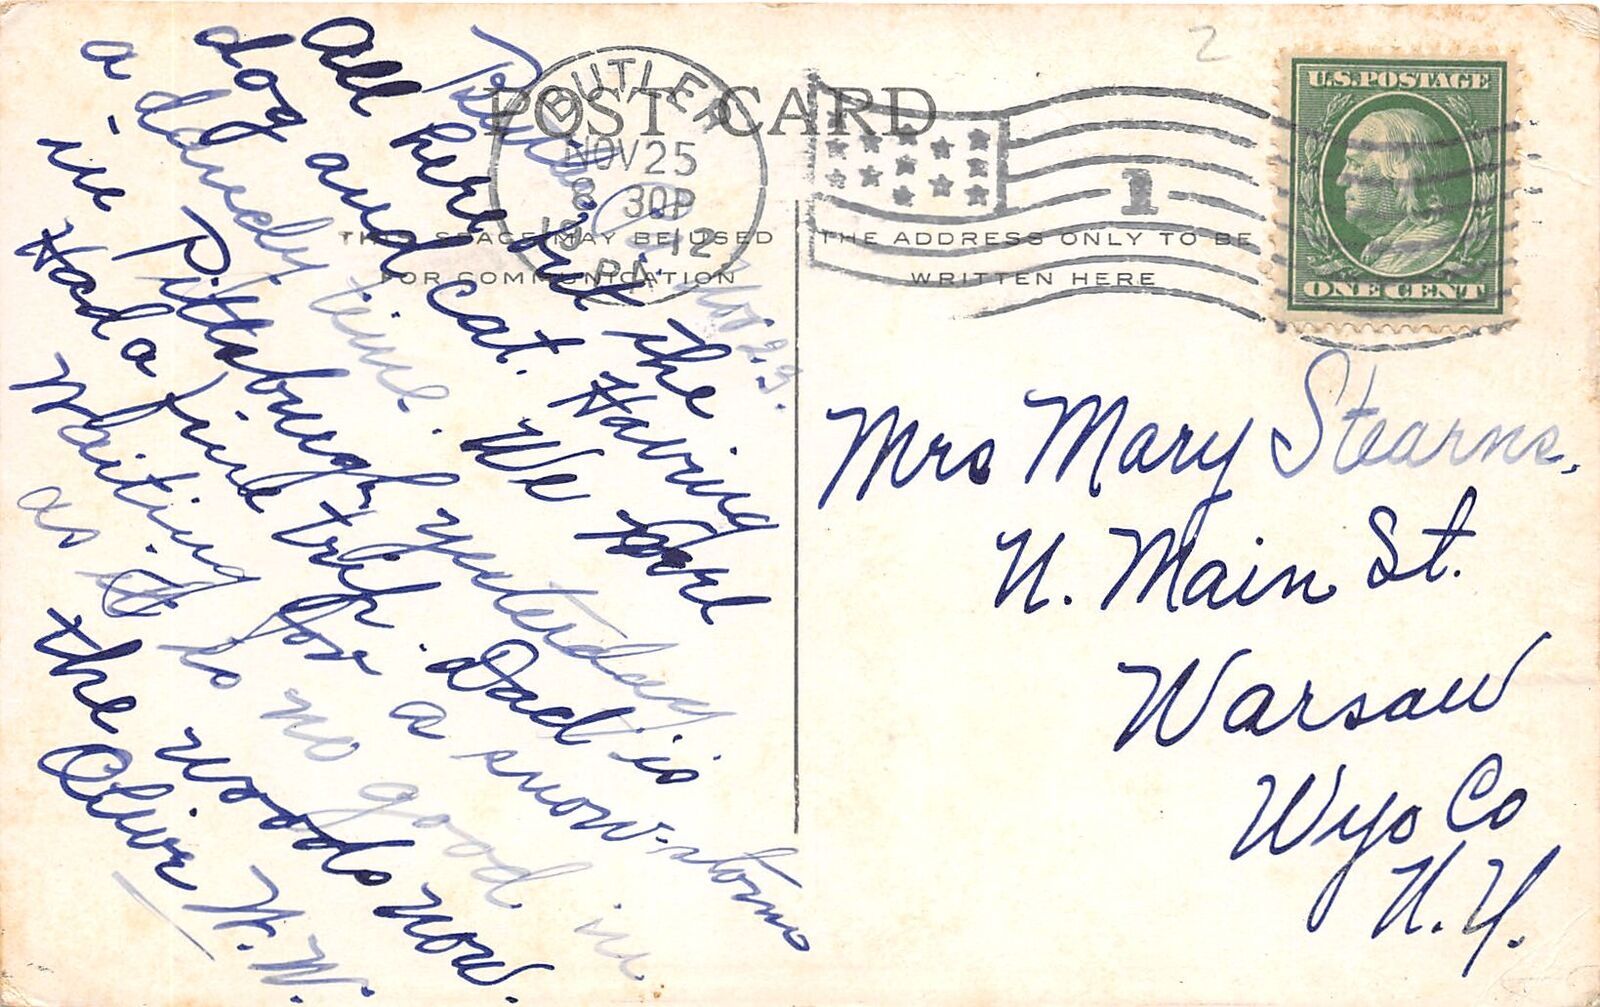 POST CARD
BUTLER
NOV 25
8 30P
1912
PA.
1
U.S. POSTAGE
ONE CENT
THIS SPACE MAY BE USED
FOR COMMUNICATION
THE ADDRESS ONLY TO BE
WRITTEN HERE
Butler Pa. Nov 25.
All here but the
dog and cat. Having
a dandy time. We took
in Pittsburgh yesterday
Had a fine trip. Dad is
Waiting for a snow-storm
as it is no good in
the woods now.
Olive W. W.
Mrs Mary Stearns,
N. Main St.
Warsaw
Wyo Co
N. Y.
2